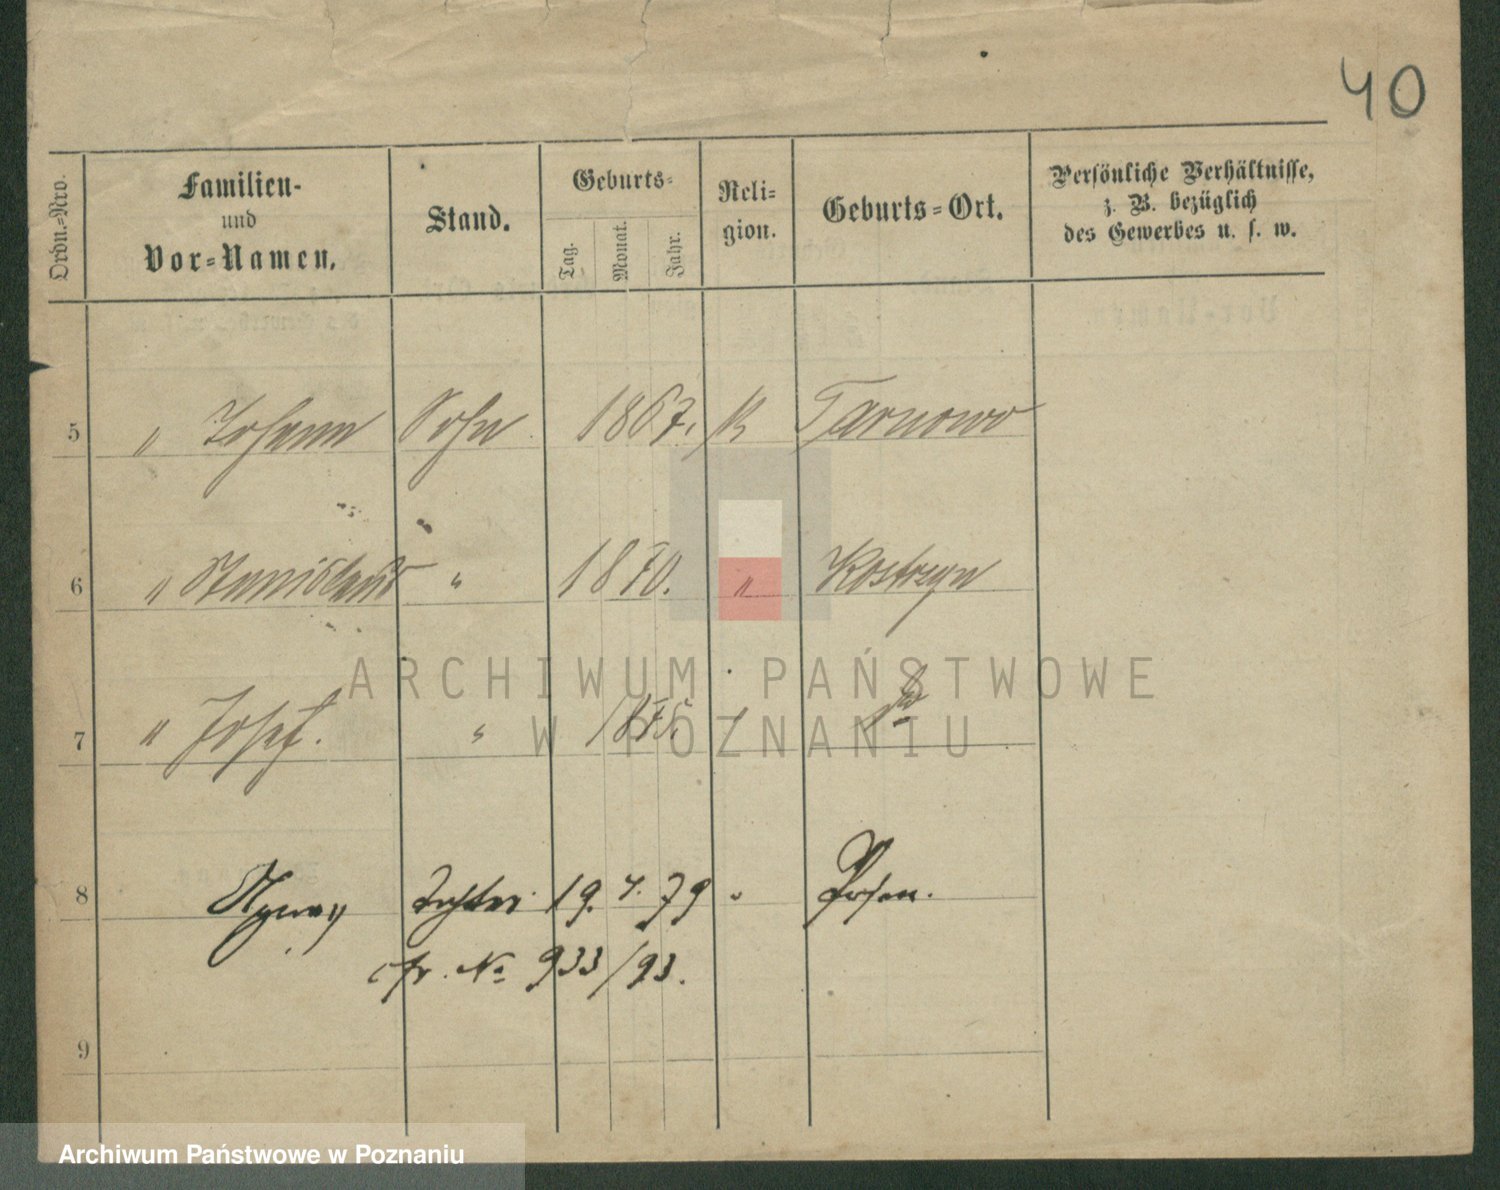 40
Ordn.-Nro. Familien- und Vor-Namen. Stand. Geburts- Tag. Monat. Jahr. Religion. Geburts-Ort. Persönliche Verhältnisse, z. B. bezüglich des Gewerbes u. s. w.
5 " Johann Sohn 1867. K Tarnowo
6 " Stanislaus " 1870. " Kostrzyn
7 " Josef. " 1875. " do
8 Tochter 19. 4. 79 " Posen.
cfr. No 933/93.
9
ARCHIWUM PAŃSTWOWE
W POZNANIU
Archiwum Państwowe w Poznaniu